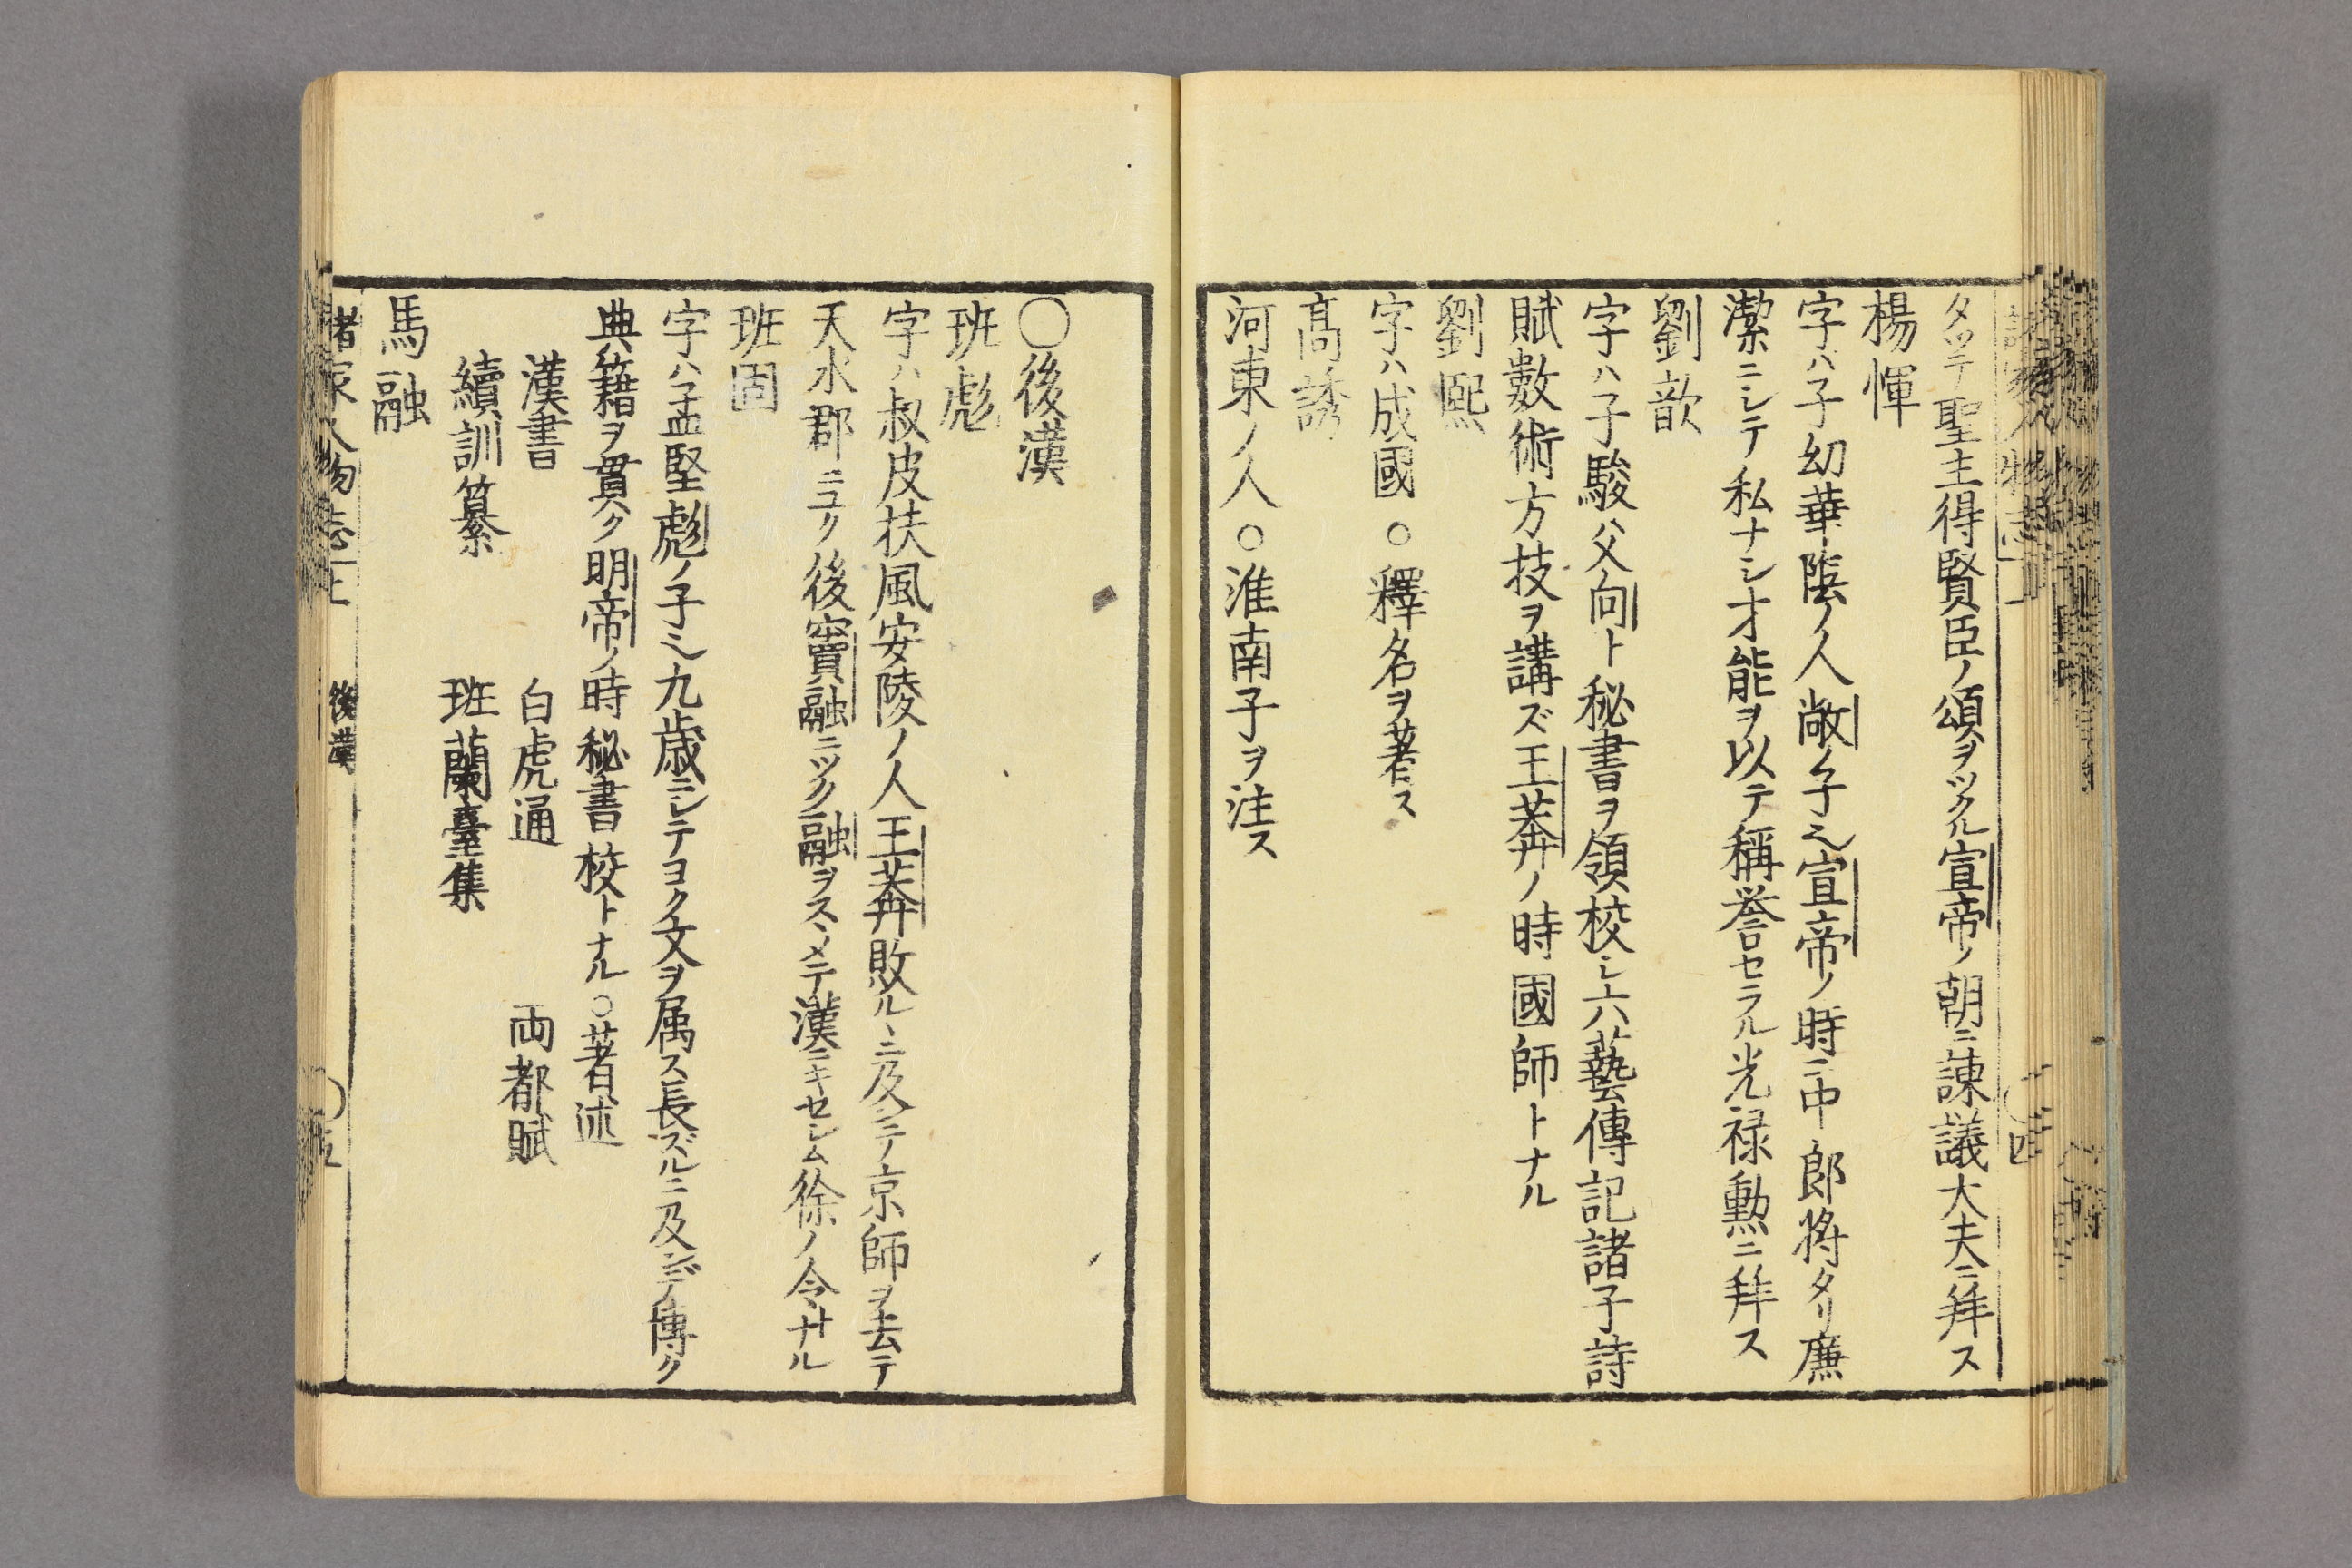 タツテ聖主得賢臣ノ頌ヲツクル宣帝ノ朝ニ諌議大夫ニ拜ス
楊惲
字ハ子幼華陰ノ人敞ノ子也宣帝ノ時ニ中郎将タリ廉
潔ニシテ私ナシ才能ヲ以テ稱誉セラル光禄勲ニ拜ス
劉歆
字ハ子駿父向ト秘書ヲ領校シ六藝傳記諸子詩
賦數術方技ヲ講ズ王莽ノ時國師トナル
劉熙
字ハ成國○釋名ヲ著ス
髙誘
河東ノ人○淮南子ヲ注ス
○後漢
班彪
字ハ叔皮扶風安陵ノ人王莽敗ルヽニ及ンテ京師ヲ去テ
天水郡ニユク後竇融ニツク融ヲスヽメテ漢ニキセシム徐ノ令ナル
班固
字ハ孟堅彪ノ子也九歳ニシテヨク文ヲ属ス長ズルニ及ンデ博ク
典籍ヲ貫ク明帝ノ時秘書校トナル○著述
漢書 白虎通 両都賦
續訓纂 班蘭臺集
馬融
諸家人物志上 後漢 ○五